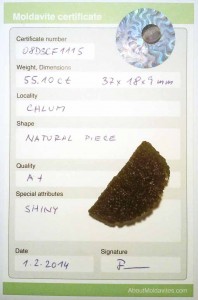 Moldavite certificate
Certificate number
08D3CF1115
Weight, Dimensions
55.10 ct 37 x 18 x 9 mm
Locality
CHLUM
Shape
NATURAL PIECE
Quality
A+
Special attributes
SHINY
Date
Signature
1.2.2014
AboutMoldavites.com